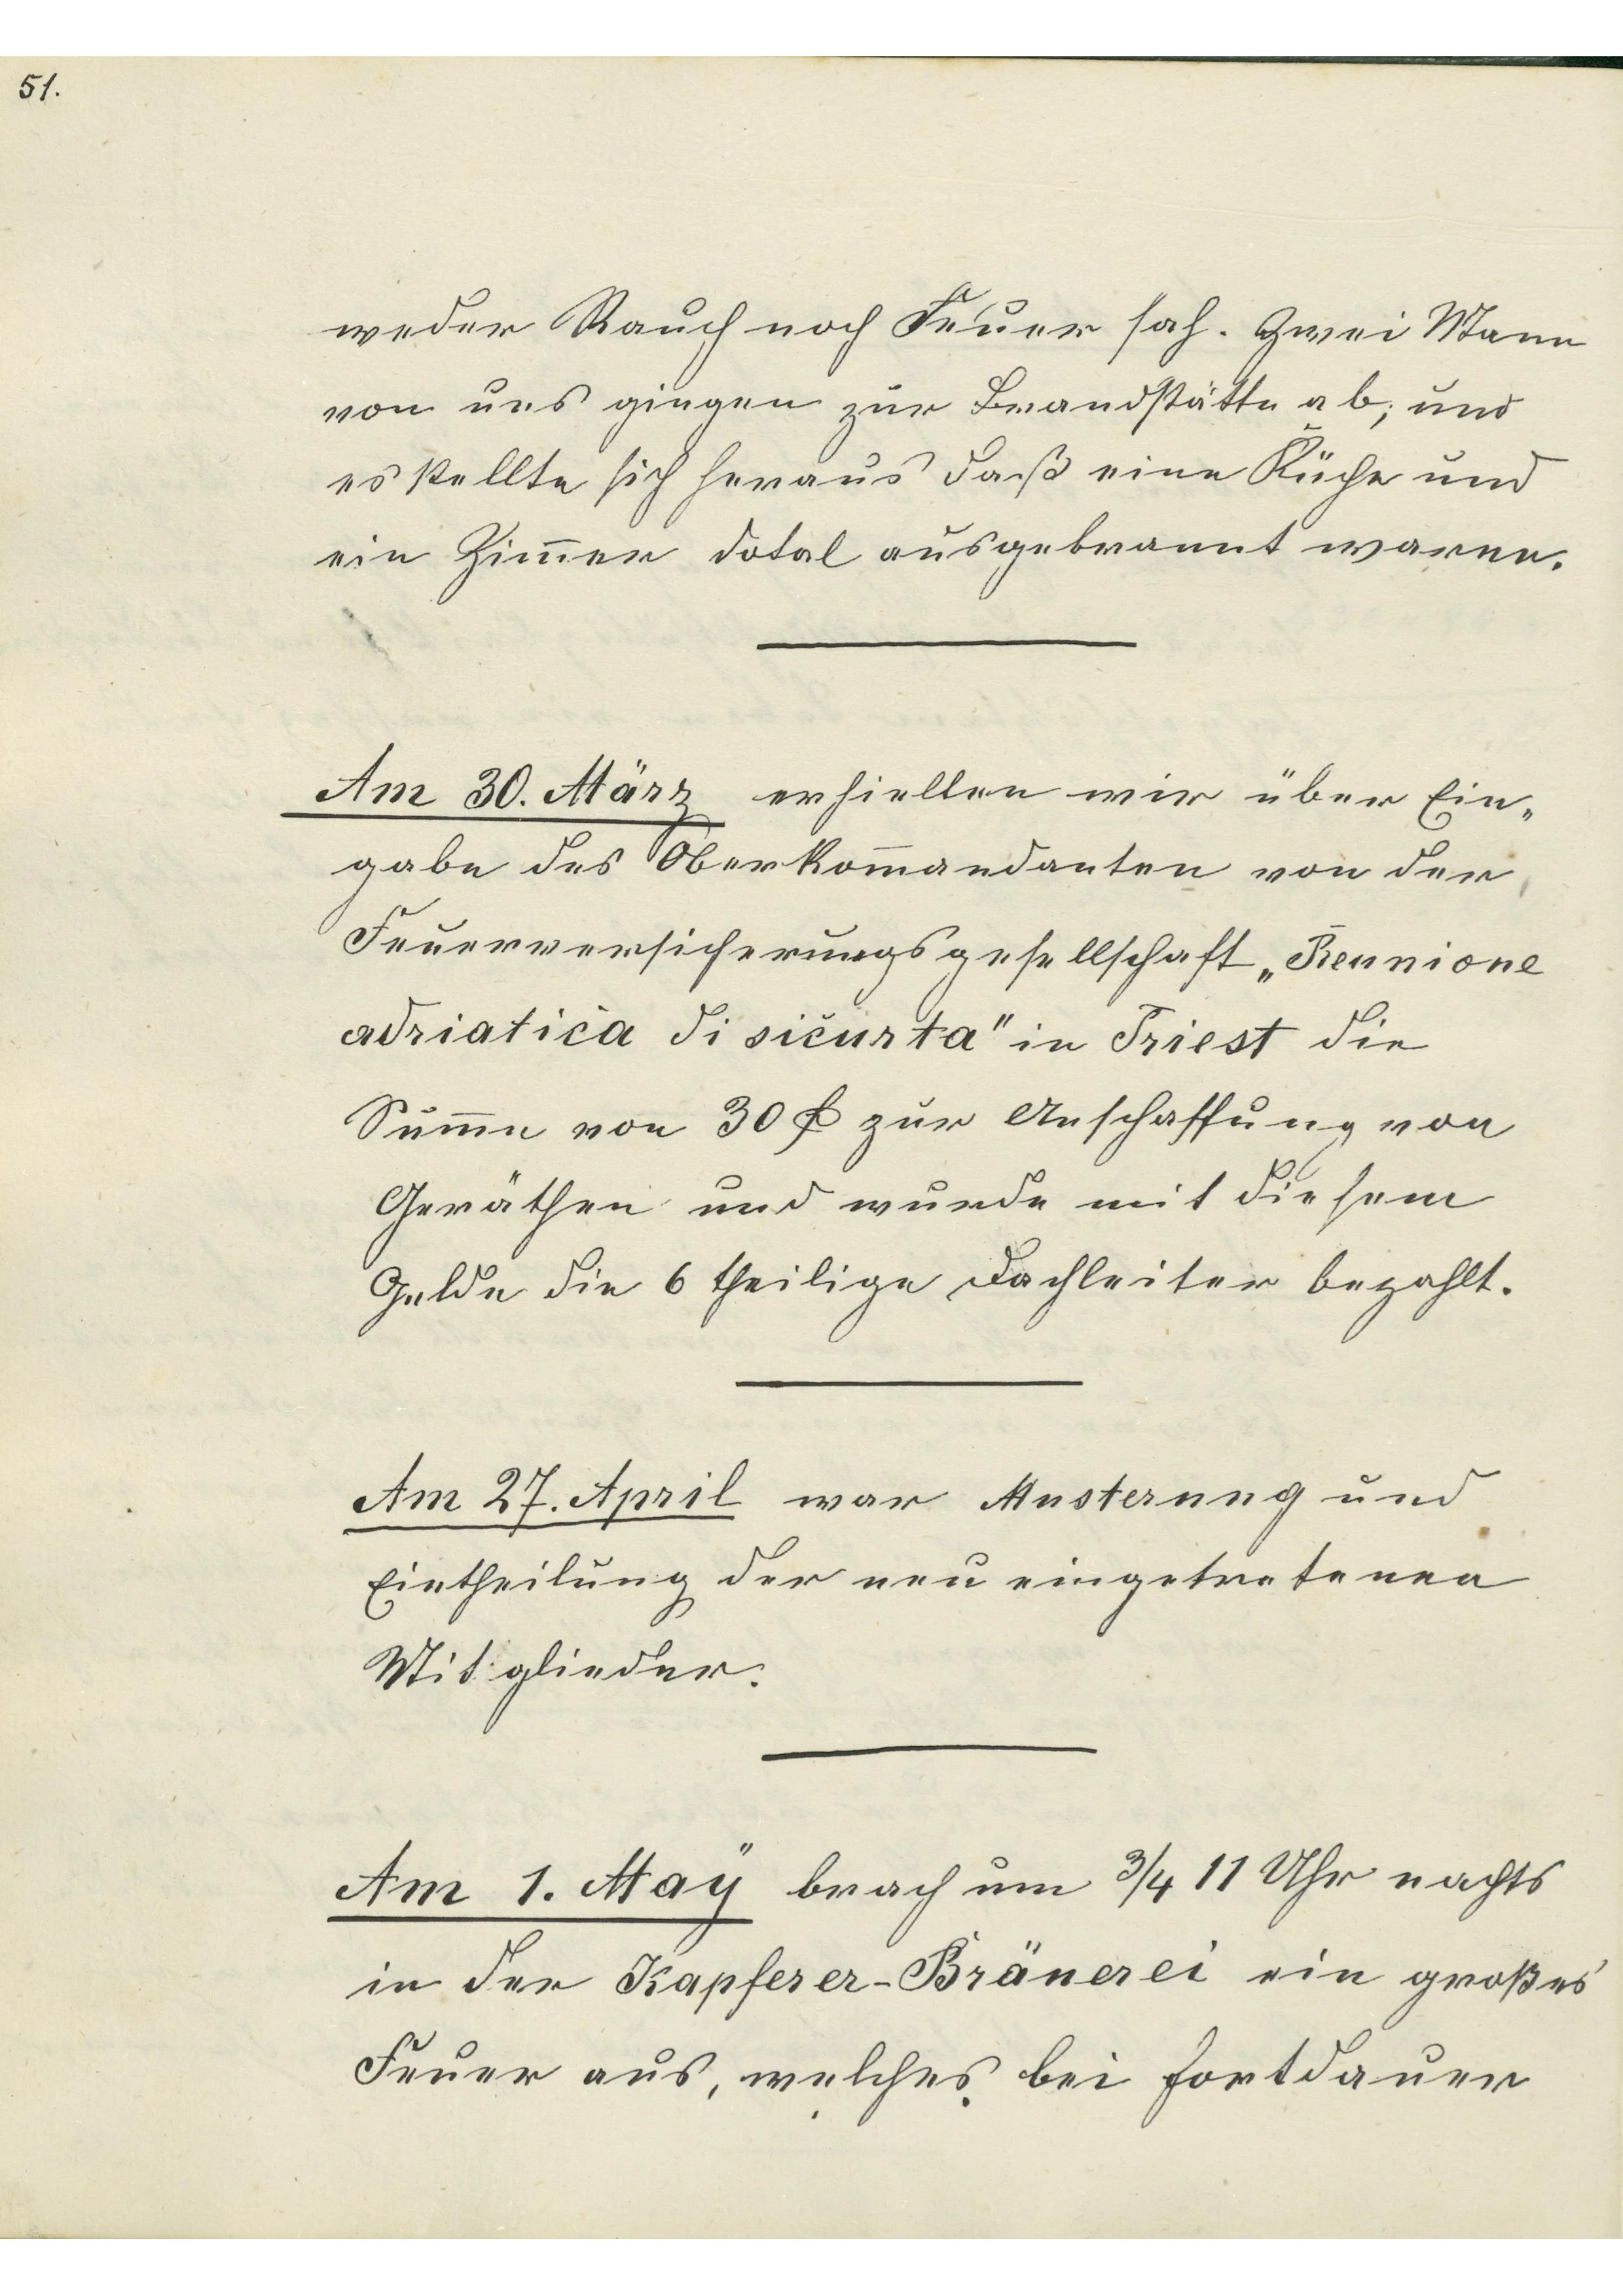 51.
weder Rauch noch Feuer sah. Zwei Mann
von uns gingen zur Brandstätte ab; und
es stellte sich heraus daß eine Küche und
ein Zim̅er dotal ausgebrannt waren.
Am 30. März erhielten wir über Ein„
gabe des Oberkom̅andanten von der
Feuerversicherungsgesellschaft „Reunione
adriatica di sicurta" in Triest die
Sum̅e von 30 fl zur Anschaffung von
Geräthen und wurde mit diesem
Gelde die 6 theilige Dachleiter bezahlt.
Am 27. April war Musterung und
Eintheilung der neu eingetretenen
Mitglieder.
Am 1. Maÿ brach um 3/4 11 Uhr nachts
in der Kapferer-Bräuerei ein großes
Feuer aus, welches bei Fortdauer